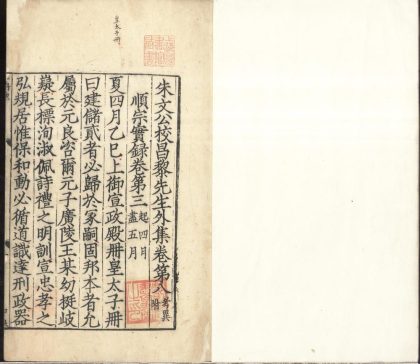 朱文公校昌黎先生外集卷第八 考異附
順宗實録卷第三 起四月盡五月
夏四月乙巳上御宣政殿冊皇太子冊
曰建儲貳者必歸於冢嗣固邦本者允
屬於元良咨爾元子廣陵王某幼挺岐
嶷長標洵淑佩詩禮之明訓宣忠孝之
弘規居惟保和動必循道識達刑政器
皇太子冊